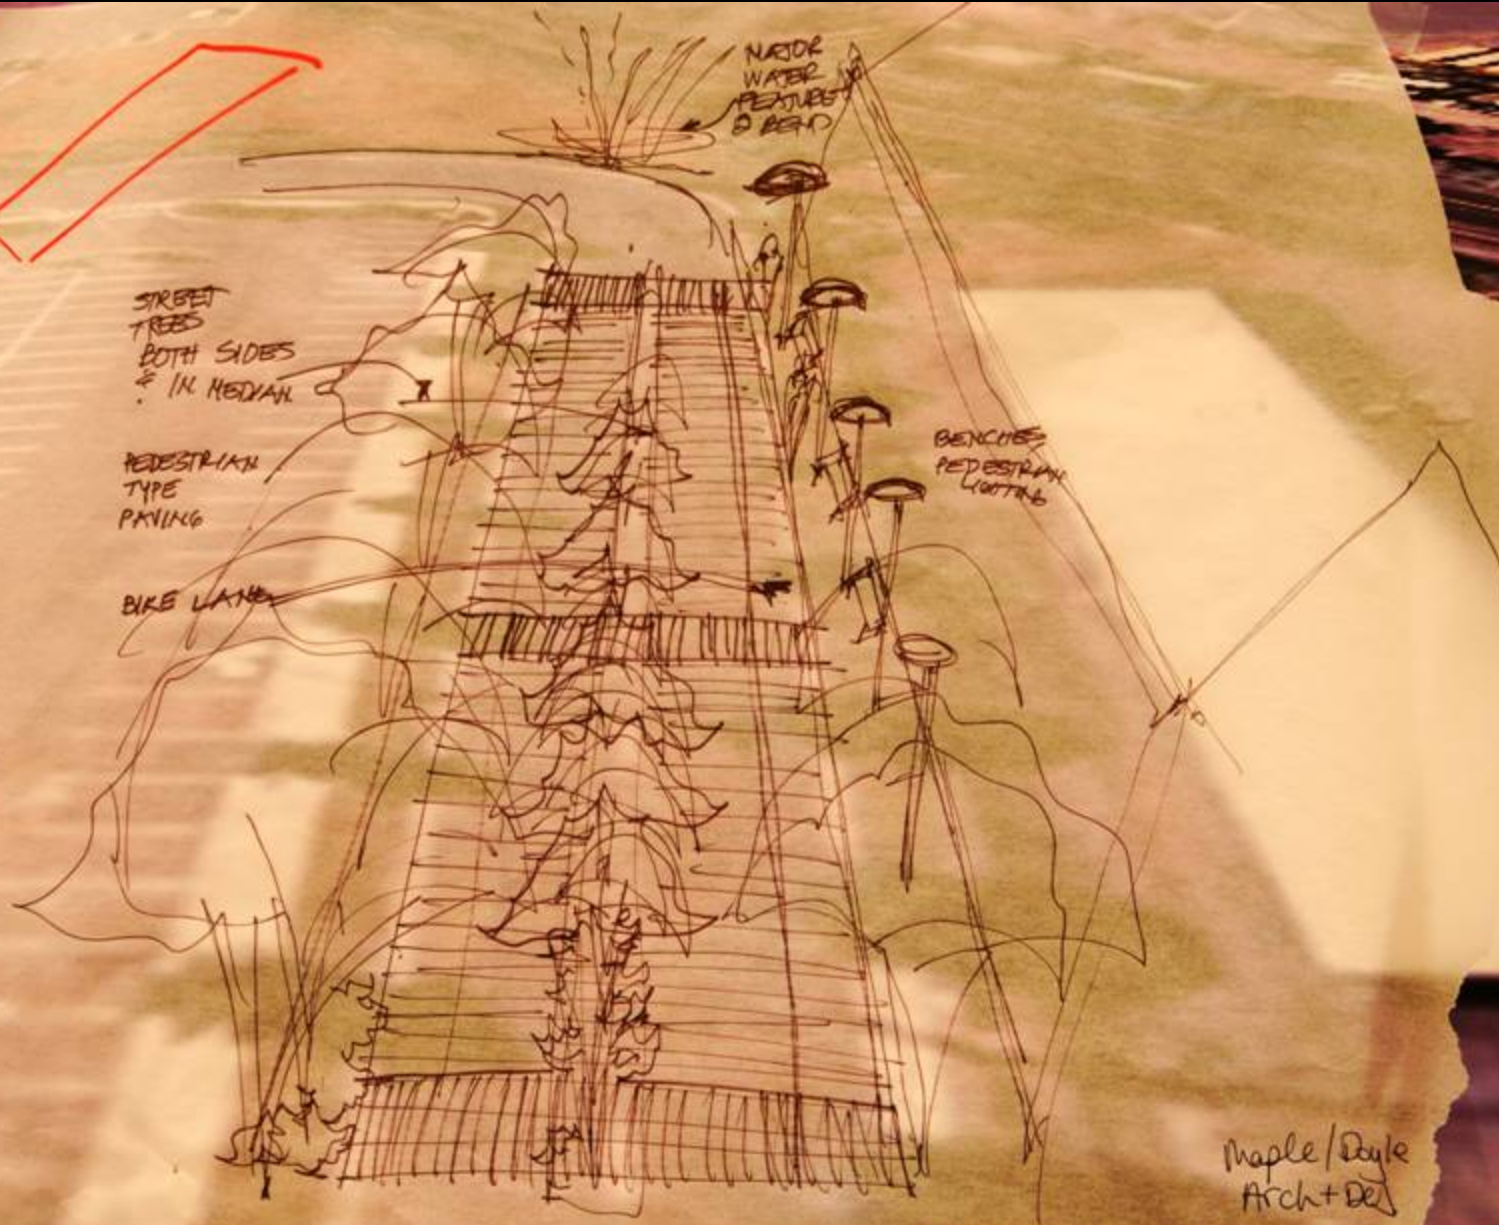 MAJOR
WATER
FEATURE
@ BEND
STREET
TREES
BOTH SIDES
& IN MEDIAN
PEDESTRIAN
TYPE
PAVING
BIKE LANE
BENCHES
PEDESTRIAN
LIGHTING
Maple/Doyle
Arch + Des